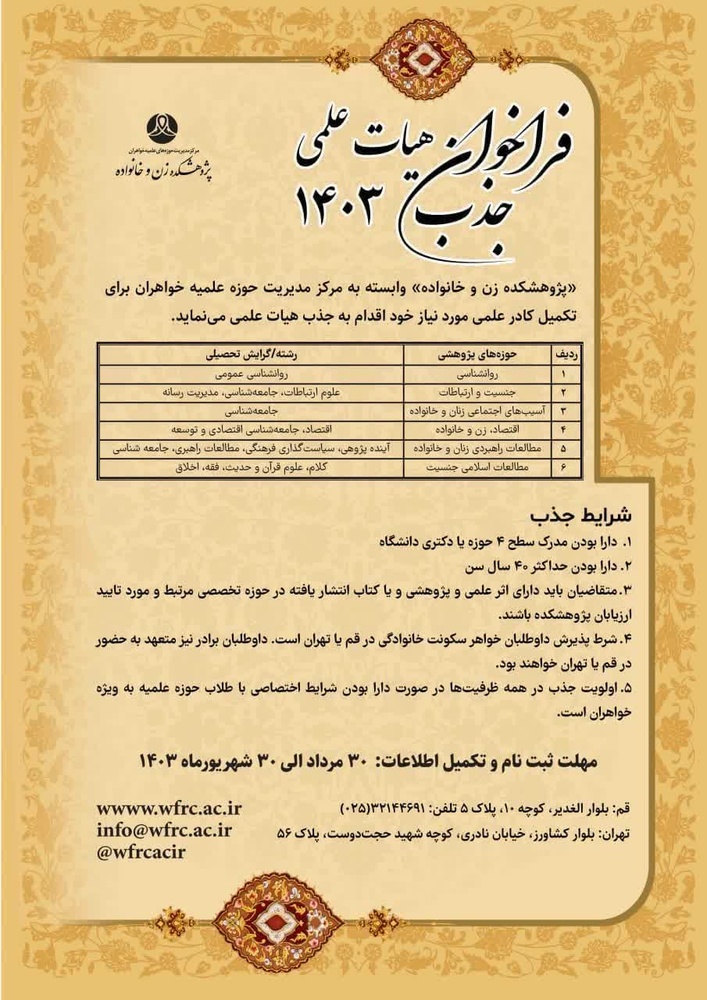 فراخوان هیات علمی
جذب ۱۴۰۳
مرکز مدیریت حوزه‌های علمیه خواهران
پژوهشکده زن و خانواده
«پژوهشکده زن و خانواده» وابسته به مرکز مدیریت حوزه علمیه خواهران برای
تکمیل کادر علمی مورد نیاز خود اقدام به جذب هیات علمی می‌نماید.
ردیف حوزه‌های پژوهشی رشته/گرایش تحصیلی
۱ روانشناسی روانشناسی عمومی
۲ جنسیت و ارتباطات علوم ارتباطات، جامعه‌شناسی، مدیریت رسانه
۳ آسیب‌های اجتماعی زنان و خانواده جامعه‌شناسی
۴ اقتصاد، زن و خانواده اقتصاد، جامعه‌شناسی اقتصادی و توسعه
۵ مطالعات راهبردی زنان و خانواده آینده پژوهی، سیاست‌گذاری فرهنگی، مطالعات راهبری، جامعه شناسی
۶ مطالعات اسلامی جنسیت کلام، علوم قرآن و حدیث، فقه، اخلاق
شرایط جذب
۱. دارا بودن مدرک سطح ۴ حوزه یا دکتری دانشگاه
۲. دارا بودن حداکثر ۴۰ سال سن
۳. متقاضیان باید دارای اثر علمی و پژوهشی و یا کتاب انتشار یافته در حوزه تخصصی مرتبط و مورد تایید
ارزیابان پژوهشکده باشند.
۴. شرط پذیرش داوطلبان خواهر سکونت خانوادگی در قم یا تهران است. داوطلبان برادر نیز متعهد به حضور
در قم یا تهران خواهند بود.
۵. اولویت جذب در همه ظرفیت‌ها در صورت دارا بودن شرایط اختصاصی با طلاب حوزه علمیه به ویژه
خواهران است.
مهلت ثبت نام و تکمیل اطلاعات: ۳۰ مرداد الی ۳۰ شهریورماه ۱۴۰۳
قم: بلوار الغدیر، کوچه ۱۰، پلاک ۵ تلفن: ۳۲۱۴۴۶۹۱(۰۲۵)
تهران: بلوار کشاورز، خیابان نادری، کوچه شهید حجت‌دوست، پلاک ۵۶
wwww.wfrc.ac.ir
info@wfrc.ac.ir
@wfrcacir